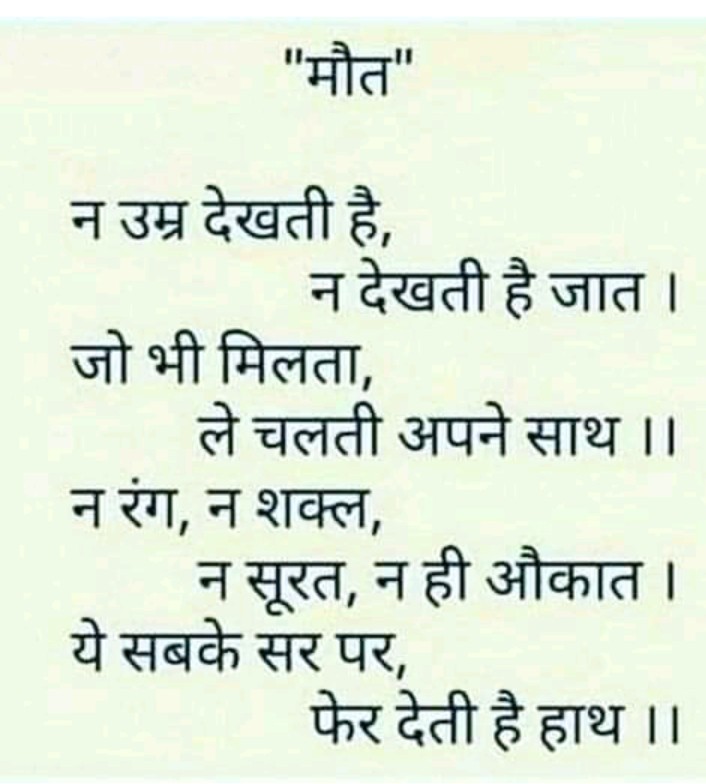 "मौत"
न उम्र देखती है,
न देखती है जात ।
जो भी मिलता,
ले चलती अपने साथ ।।
न रंग, न शक्ल,
न सूरत, न ही औकात ।
ये सबके सर पर,
फेर देती है हाथ ।।